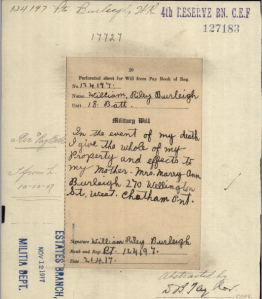 124197 Pte Burleigh, W.R
4th RESERVE BN. C.E.F
127183
17727
20
Perforated sheet for Will from Pay Book of Reg.
No. 124197.
Name William Riley Burleigh
Unit 18. Batt.
Military Will
In the event of my death
I give the whole of my
Property and effects to
my Mother- Mrs. Marry Ann
Burleigh 270 Wellington
St, West. Chatham Ont.
Signature William Riley Burleigh
Rank and Reg Pt. 124197.
Date 21.4.17.
ESTATES BRANCH,
NOV 12 1917
MILITIA DEPT.
Abstracted by